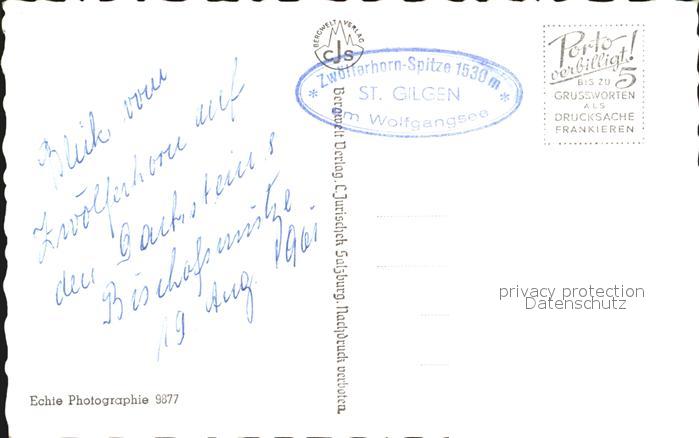 Blick vom
Zwölferhorn auf
den Dachstein &
Bischofsmütze
19 Aug. 1961
Echte Photographie 9877
BERGWELT VERLAG
CJS
Bergwelt Verlag, C. Jurischek Salzburg. Nachdruck verboten.
* Zwölferhorn-Spitze 1530 m *
ST. GILGEN
am Wolfgangsee
Porto
verbilligt!
BIS ZU 5
GRUSSWORTEN
ALS
DRUCKSACHE
FRANKIEREN
privacy protection
Datenschutz